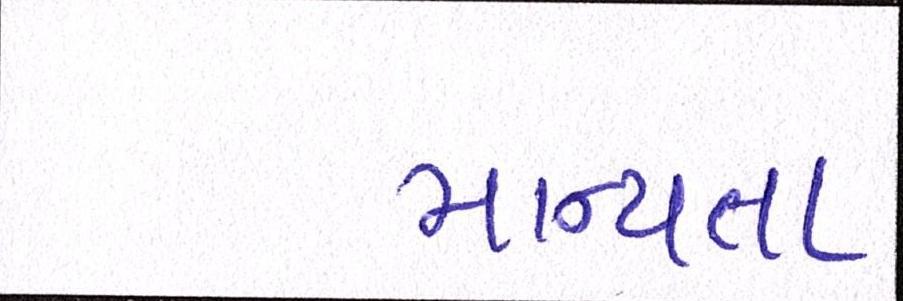 માન્યતા